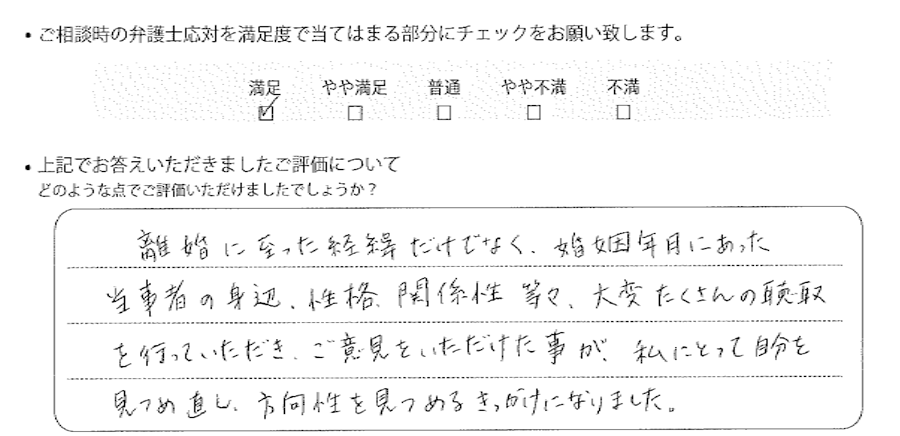 ・ご相談時の弁護士応対を満足度で当てはまる部分にチェックをお願い致します。
満足 やや満足 普通 やや不満 不満
☑ □ □ □ □
・上記でお答えいただきましたご評価について
どのような点でご評価いただけましたでしょうか？
離婚に至った経緯だけでなく、婚姻年月にあった
当事者の身辺、性格、関係性等々、大変たくさんの聴取
を行っていただき、ご意見をいただけた事が、私にとって自分を
見つめ直し、方向性を見つめるきっかけになりました。